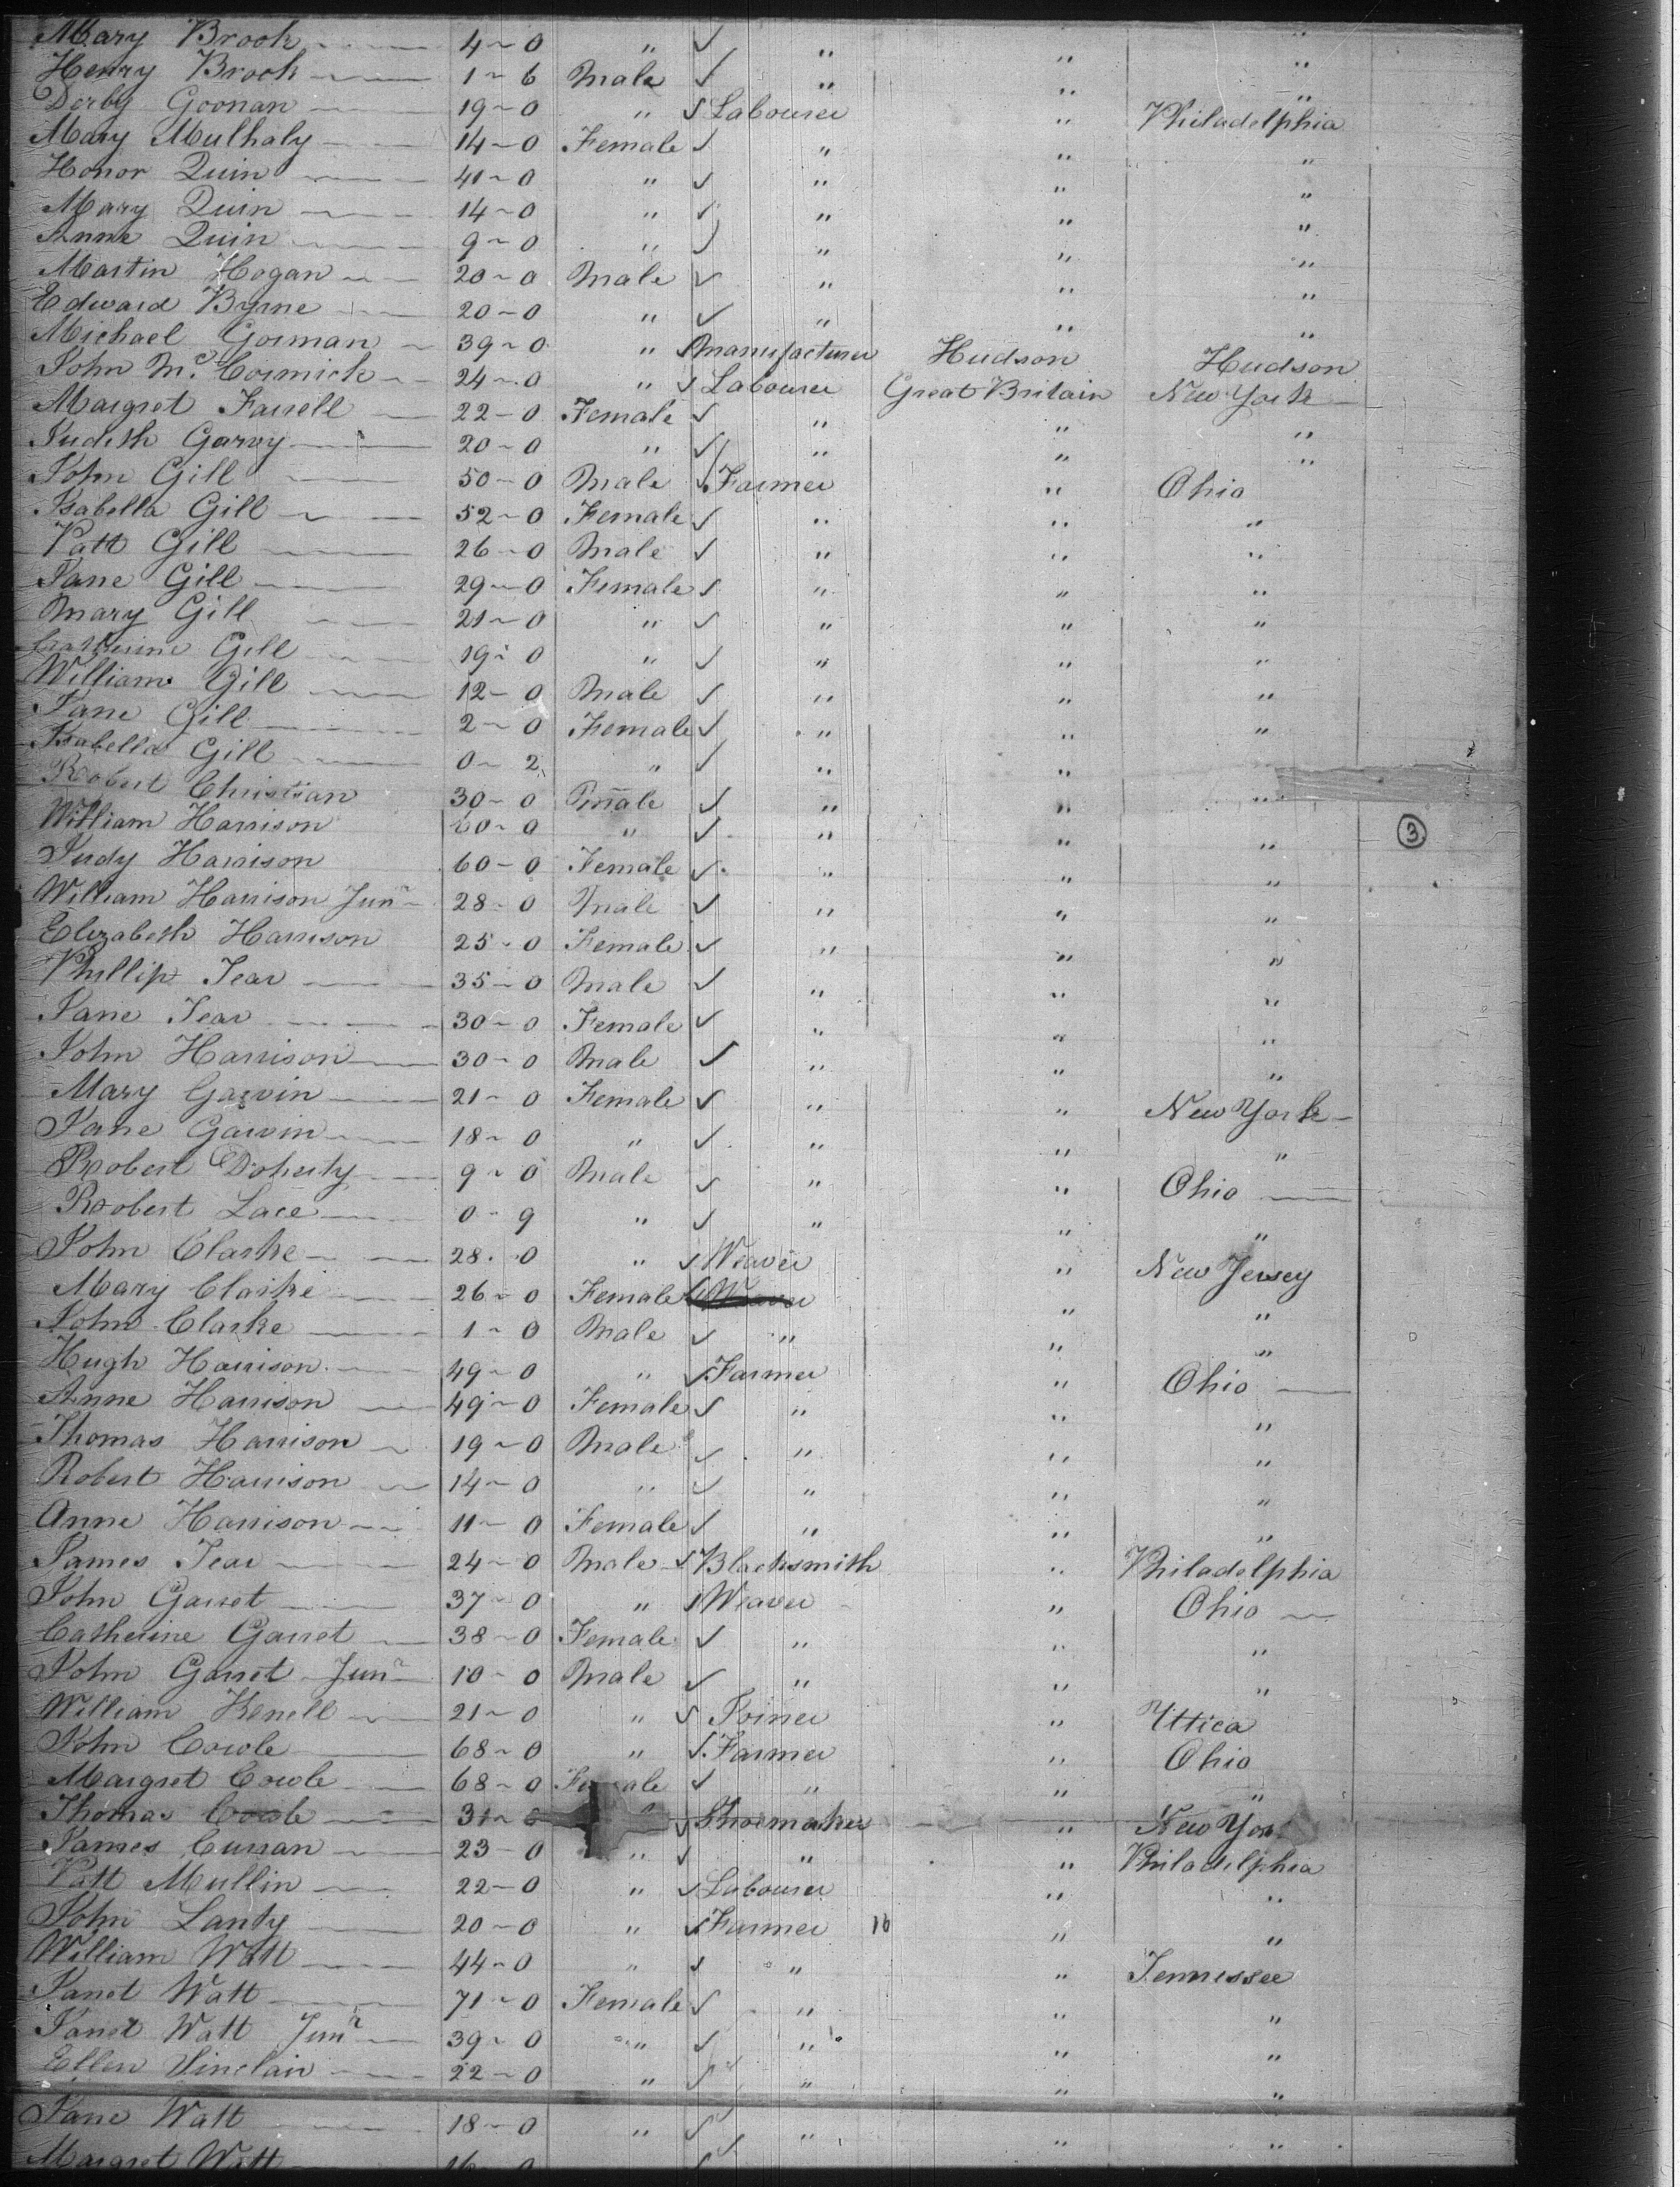 Mary Brook 4 ~ 0 " ✓ " " "
Henry Brook 1 ~ 6 Male ✓ " " "
Derby Goonan 19 ~ 0 " ✓ Labourer " Philadelphia
Mary Mulhaly 14 ~ 0 Female ✓ " " "
Honor Quin 40 ~ 0 " ✓ " " "
Mary Quin 14 ~ 0 " ✓ " " "
Anne Quin 9 ~ 0 " ✓ " " "
Martin Hogan 20 ~ 0 Male ✓ " " "
Edward Byrne 20 ~ 0 " ✓ " " "
Michael Gorman 39 ~ 0 " ✓ Manufacturer Hudson Hudson
John Mc. Cormick 24 ~ 0 " ✓ Labourer Great Britain New York
Margret Farrell 22 ~ 0 Female ✓ " " "
Judith Garvy 20 ~ 0 " ✓ " " "
John Gill 50 ~ 0 Male ✓ Farmer " Ohio
Isabella Gill 52 ~ 0 Female ✓ " " "
Patt Gill 26 ~ 0 Male ✓ " " "
Jane Gill 29 ~ 0 Female ✓ " " "
Mary Gill 21 ~ 0 " ✓ " " "
Catherine Gill 19 ~ 0 " ✓ " " "
William Gill 12 ~ 0 Male ✓ " " "
Jane Gill 2 ~ 0 Female ✓ " " "
Isabella Gill 0 ~ 2 " ✓ " " "
Robert Christian 30 ~ 0 Male ✓ " " "
William Harrison 60 ~ 0 " ✓ " " " 3
Judy Harrison 60 ~ 0 Female ✓ " " "
William Harrison Junr 28 ~ 0 Male ✓ " " "
Elizabeth Harrison 25 ~ 0 Female ✓ " " "
Phillip Tear 35 ~ 0 Male ✓ " " "
Jane Tear 30 ~ 0 Female ✓ " " "
John Harrison 30 ~ 0 Male ✓ " " "
Mary Garvin 21 ~ 0 Female ✓ " " New York
Jane Garvin 18 ~ 0 " ✓ " " "
Robert Doherty 9 ~ 0 Male ✓ " " Ohio
Robert Lace 0 ~ 9 " ✓ " " "
John Clarke 28 ~ 0 " ✓ Weaver " New Jersey
Mary Clarke 26 ~ 0 Female ✓ Weaver " "
John Clarke 1 ~ 0 Male ✓ " " "
Hugh Harrison 49 ~ 0 " ✓ Farmer " Ohio
Anne Harrison 49 ~ 0 Female ✓ " " "
Thomas Harrison 19 ~ 0 Male ✓ " " "
Robert Harrison 14 ~ 0 " ✓ " " "
Anne Harrison 11 ~ 0 Female ✓ " " "
James Tear 24 ~ 0 Male ✓ Blacksmith " Philadelphia
John Garret 37 ~ 0 " ✓ Weaver " Ohio
Catherine Garret 38 ~ 0 Female ✓ " " "
John Garret Junr 10 ~ 0 Male ✓ " " "
William Kenell 21 ~ 0 " ✓ Joiner " Uttica
John Cowle 68 ~ 0 " ✓ Farmer " Ohio
Margret Cowle 68 ~ 0 Female ✓ " " "
Thomas Cowle 31 ~ 0 " ✓ Shoemaker " New York
James Curran 23 ~ 0 " ✓ " " Philadelphia
Patt Mullin 22 ~ 0 " ✓ Labourer " "
John Lanty 20 ~ 0 " ✓ Farmer 16 " "
William Watt 44 ~ 0 " ✓ " " Tennessee
Janet Watt 71 ~ 0 Female ✓ " " "
Janet Watt Junr 39 ~ 0 " ✓ " " "
Ellen Sinclair 22 ~ 0 " ✓ " " "
Jane Watt 18 ~ 0 " ✓ " " "
Margret Watt 16 ~ 0 ✓